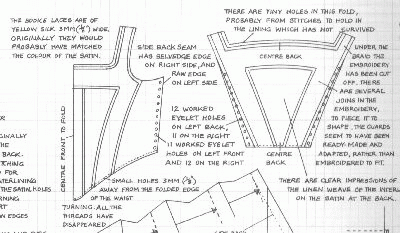 THE BODICE LACES ARE OF
YELLOW SILK 3MM (⅛") WIDE.
ORIGINALLY THEY WOULD
PROBABLY HAVE MATCHED
THE COLOUR OF THE SATIN.
SIDE BACK SEAM
HAS SELVEDGE EDGE
ON RIGHT SIDE, AND
RAW EDGE
ON LEFT SIDE
12 WORKED
EYELET HOLES
ON LEFT BACK,
11 ON THE RIGHT
11 WORKED EYELET
HOLES ON LEFT FRONT
AND 12 ON THE RIGHT
CENTRE FRONT TO FOLD
SMALL HOLES 3MM (⅛")
AWAY FROM THE FOLDED EDGE
OF THE WAIST
TURNING. ALL THE
THREADS HAVE
DISAPPEARED
THERE ARE TINY HOLES IN THIS FOLD,
PROBABLY FROM STITCHES TO HOLD IN
THE LINING WHICH HAS NOT SURVIVED
CENTRE BACK
CENTRE
BACK
UNDER THE
BRAID THE
EMBROIDERY
HAS BEEN CUT
OFF. THERE
ARE SEVERAL
JOINS IN THE
EMBROIDERY,
TO PIECE IT TO
SHAPE. THE GUARDS
SEEM TO HAVE BEEN
READY-MADE AND
ADAPTED, RATHER THAN
EMBROIDERED TO FIT.
THERE ARE CLEAR IMPRESSIONS OF
THE LINEN WEAVE OF THE INTER
ON THE SATIN AT THE BACK.
GINALLY
THE
BACK.
TCHING
FOR
TERLINING
THE SATIN, HOLES
RNING
RT
W EDGES